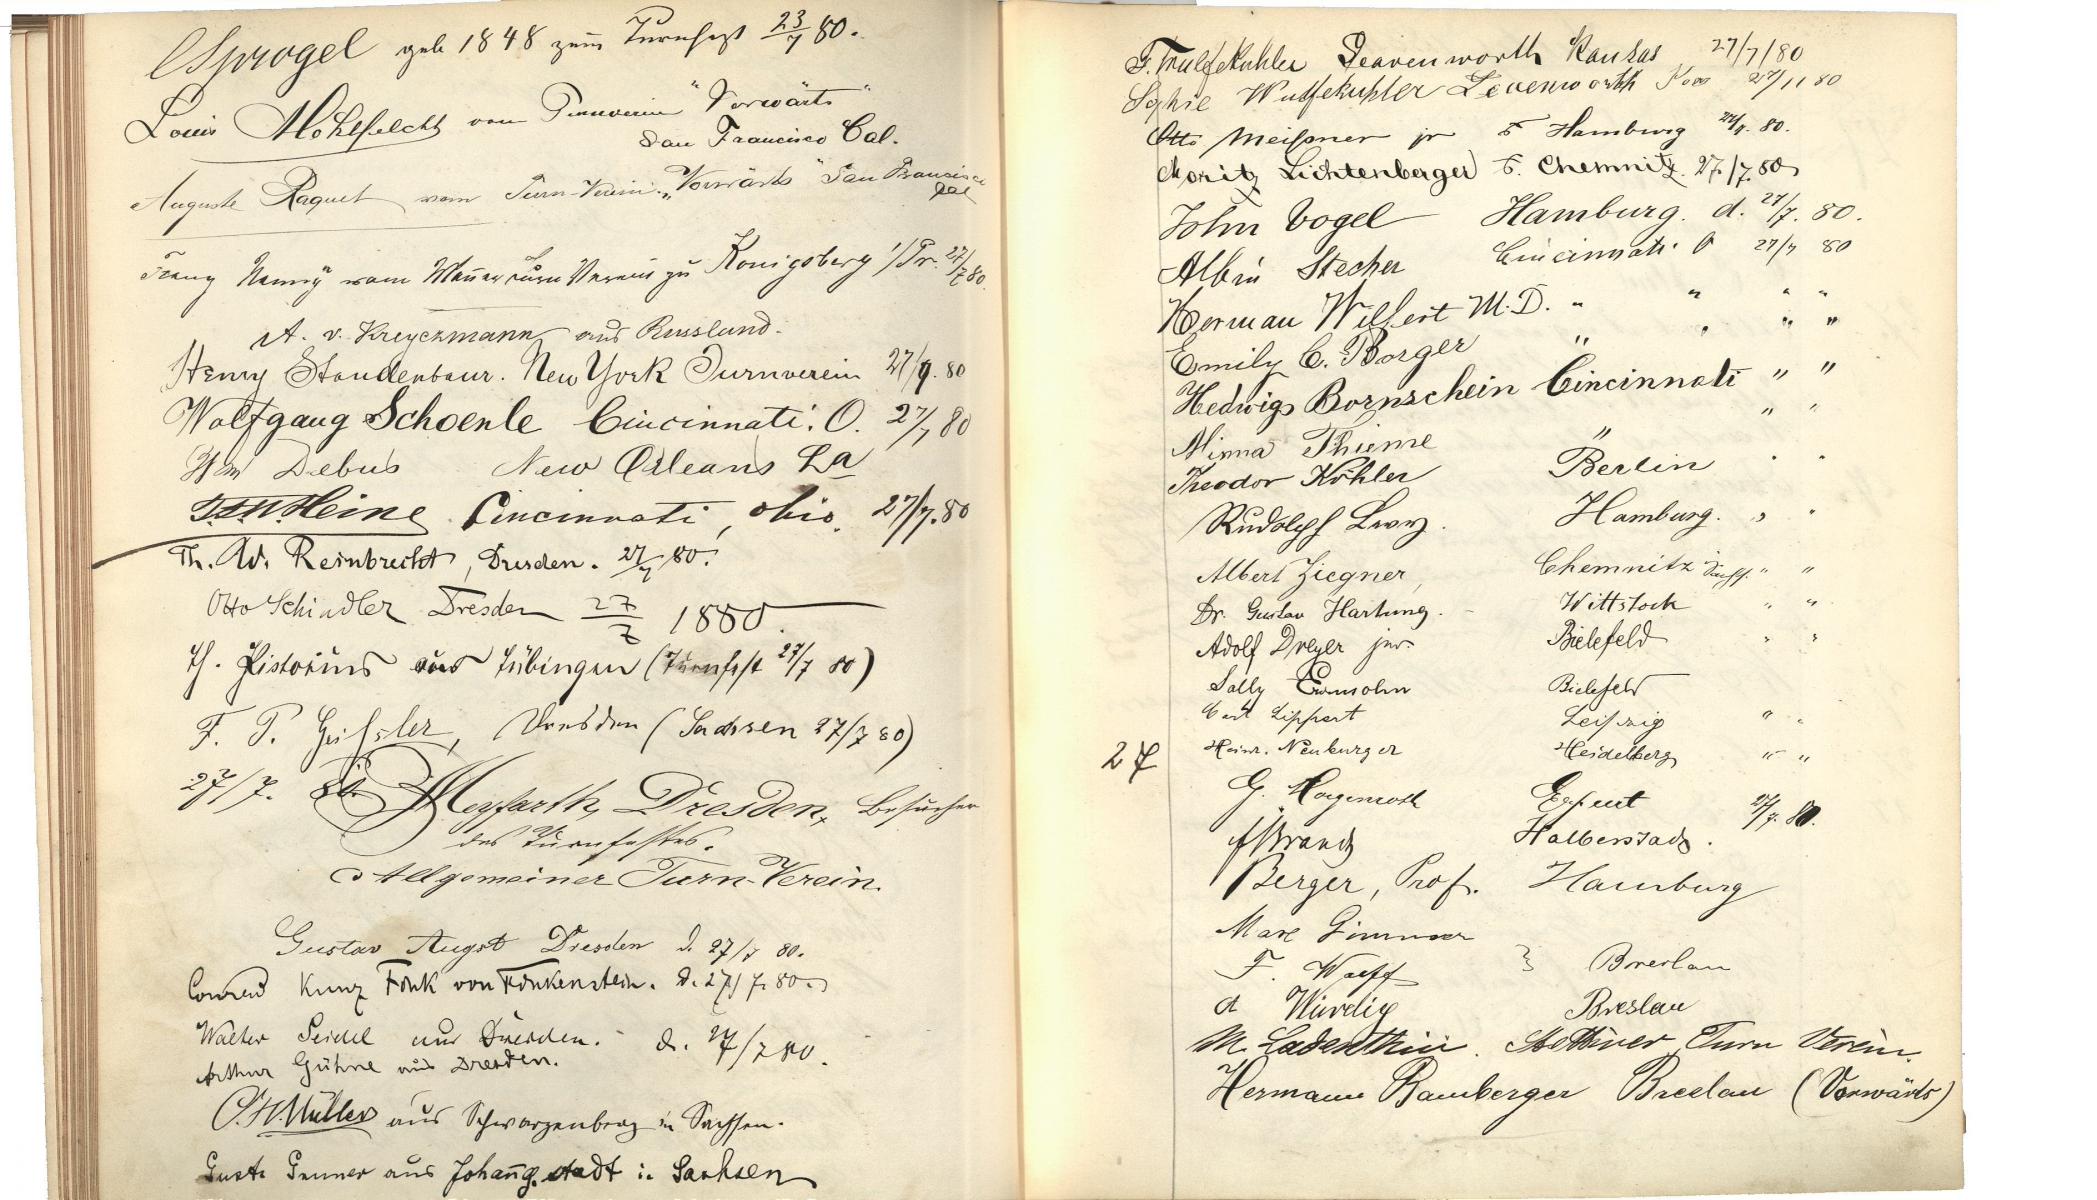 CSprogel geb 1848 zum Turnfest 23/7 80.
Louis vom Turnverein "Vorwärts"
San Francisco Cal.
Auguste Raquet vom Turn-Verein "Vorwärts" San Francisco
Cal
vom Männer Turn Verein zu Königsberg i/Pr. 27/7 80.
A. v. Kreyczmann aus Russland.
Henry Staudenbaur. New York Turnverein 27/7. 80
Wolfgang Schoenle Cincinnati. O. 27/7 80
Wm Debus New Orleans La
Heine Cincinnati, Ohio. 27/7. 80
Th. Ad. Reinbrecht, Dresden. 27/7 80.
Otto Schindler Dresden 27/7 1880.
H. Pistorius aus Tübingen (Turnfest 27/7 80)
F. P. Geißler, Dresden (Sachsen 27/7 80)
27/7. 80. Meyfarth, Dresden, Besucher
des Turnfestes.
Allgemeiner Turn-Verein.
Gustav Augst Dresden d. 27/7 80.
Conrad Kunz Fink von Finkenstein. d. 27/7. 80.
Walter Seidel aus Dresden. d. 27/7 80.
Arthur Gühne aus Dresden.
C. H. Müller aus Schwarzenberg in Sachsen.
Gust. aus Johanng.stadt i. Sachsen
F. Wulfekuhler Leavenworth Kansas 27/7/80
Sophie Wulfekuhler Levenworth 80
Otto Meißner jr Hamburg 27/7. 80.
Moritz Lichtenberger Chemnitz. 27/7. 80
John Vogel Hamburg. d. 27/7. 80.
Albin Stecher Cincinnati O 27/7 80
Herman Wilfert M.D. " " " "
Emily C. Borger " " " "
Hedwig Bornschein Cincinnati " "
Minna Thieme " " "
Theodor Köhler Berlin " "
Rudolph Hamburg. " "
Albert Ziegner, Chemnitz Sachs. " "
Dr. Gustav Hartung. Wittstock " "
Adolf Dreyer junr. Bielefeld " "
Sally Bielefeld
Carl Lippert Leipzig " "
27 Heinr. Neuburger Heidelberg " "
G. Hagenroth 27/7. 80.
Brandt Halberstadt.
Berger, Prof. Hamburg
Max
F. } Breslau
A Würdig Breslau
M. Ladenthin. Stettiner Turn Verein.
Hermann Bamberger Breslau (Vorwärts)